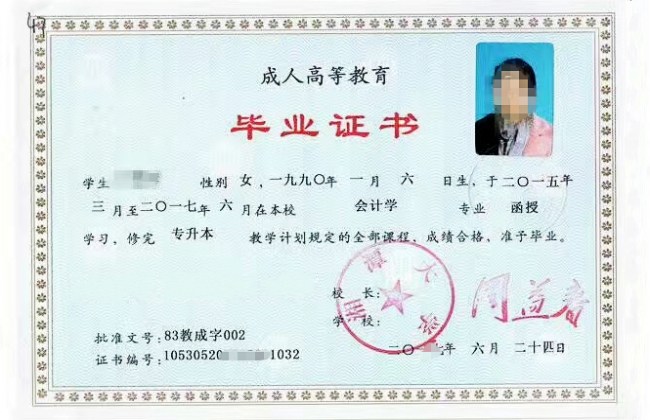 成人高等教育
毕业证书
学生 性别 女，一九九〇年 一 月 六 日生，于二〇一五年
三 月至二〇一七年 六 月在本校 会计学 专业 函授
学习，修完 专升本 教学计划规定的全部课程，成绩合格，准予毕业。
校 长： 周益春
学 校： 湘潭大学
批准文号：83教成字002
证书编号：10530520 1032
二〇 年 六 月 二十四日